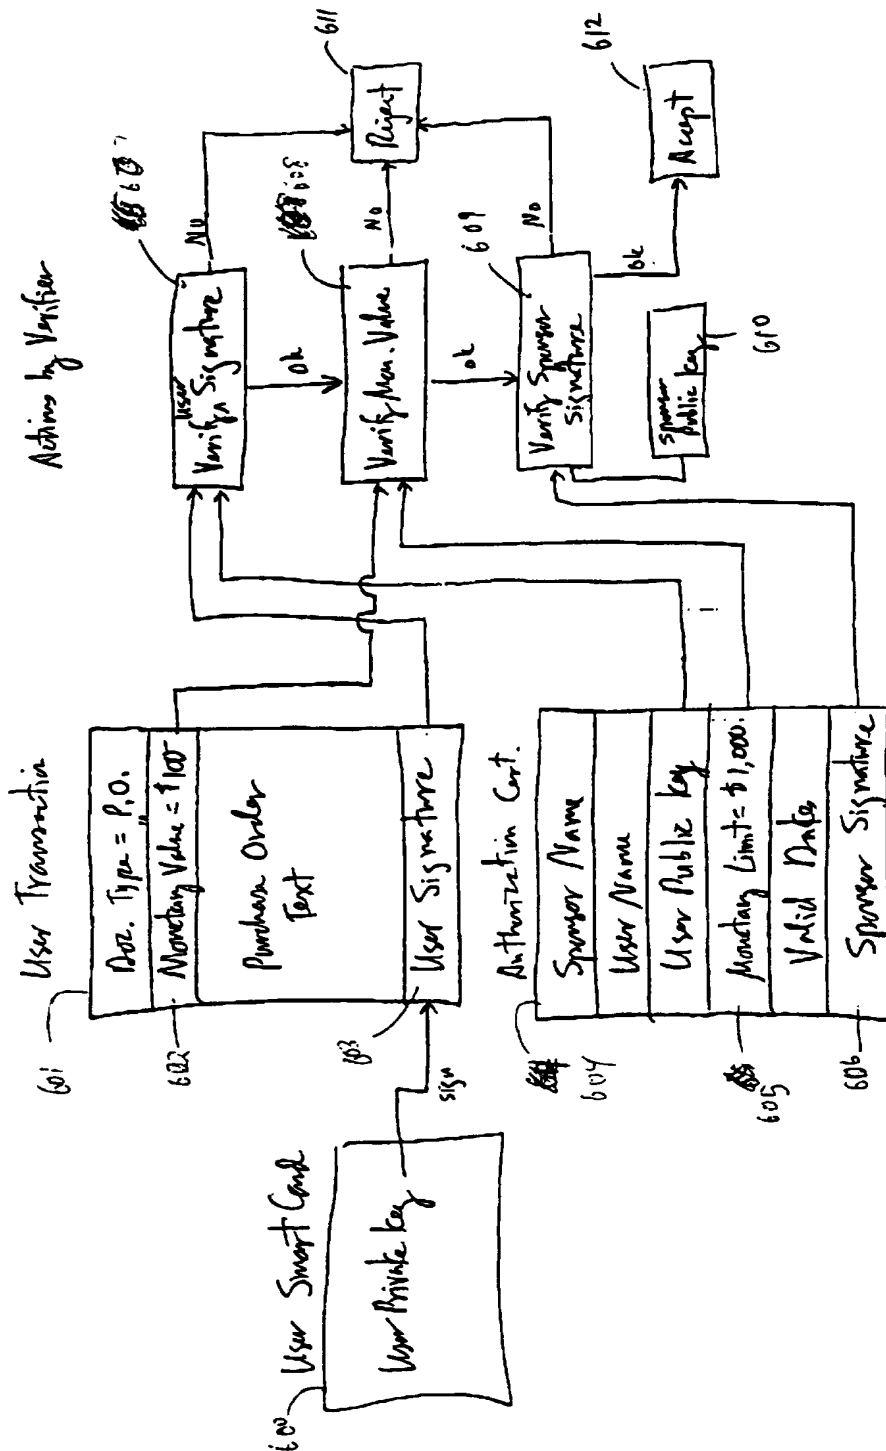 User Smart Card
600
User Private Key
sign
User Transaction
601
Doc. Type = "P.O."
Monetary Value = $100
602
Purchase Order
Text
User Signature
603
Authorization Cert.
604
Sponsor Name
User Name
User Public Key
Monetary Limit = $1,000.
605
Valid Dates
Sponsor Signature
606
Actions by Verifier
User
Verify Signature
607
No
Ok
Verify Mon. Value
608
No
Ok
Verify Sponsor
Signature
609
No
Ok
Sponsor
Public Key
610
Reject
611
Accept
612